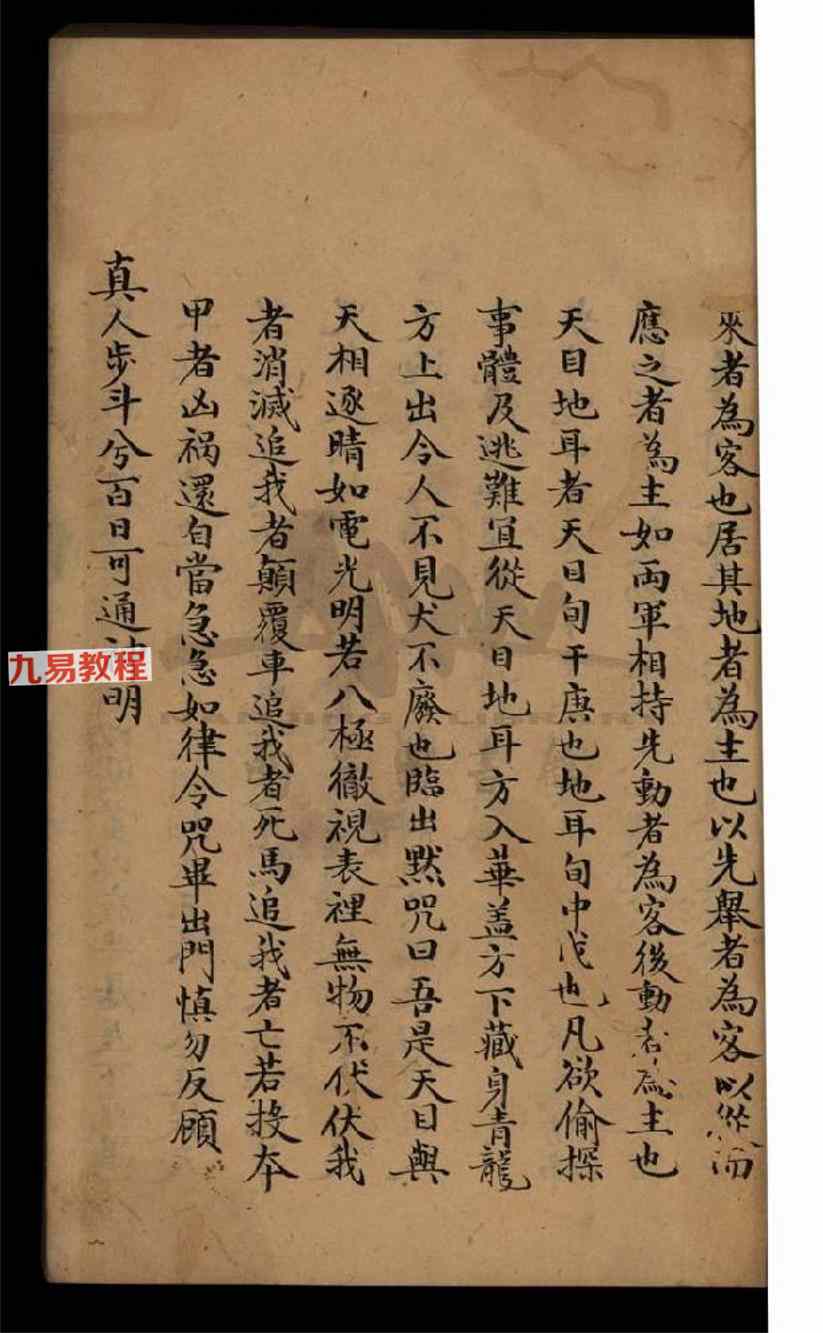 來者為客也居其地者為主也以先舉者為客以從而
應之者為主如兩軍相持先動者為客後動者為主也
天目地耳者天目旬干庚也地耳旬中戊也凡欲偷探
事體及逃難宜從天目地耳方入華盖方下藏身青龍
方上出令人不見犬不廢也臨出默咒曰吾是天目與
天相逐睛如電光明若八極徹視表裡無物不伏伏我
者消滅追我者顛覆車追我者死馬追我者亡若投夲
甲者凶禍還自當急急如律令咒畢出門慎勿反顧
真人步斗兮百日可通明
九易教程